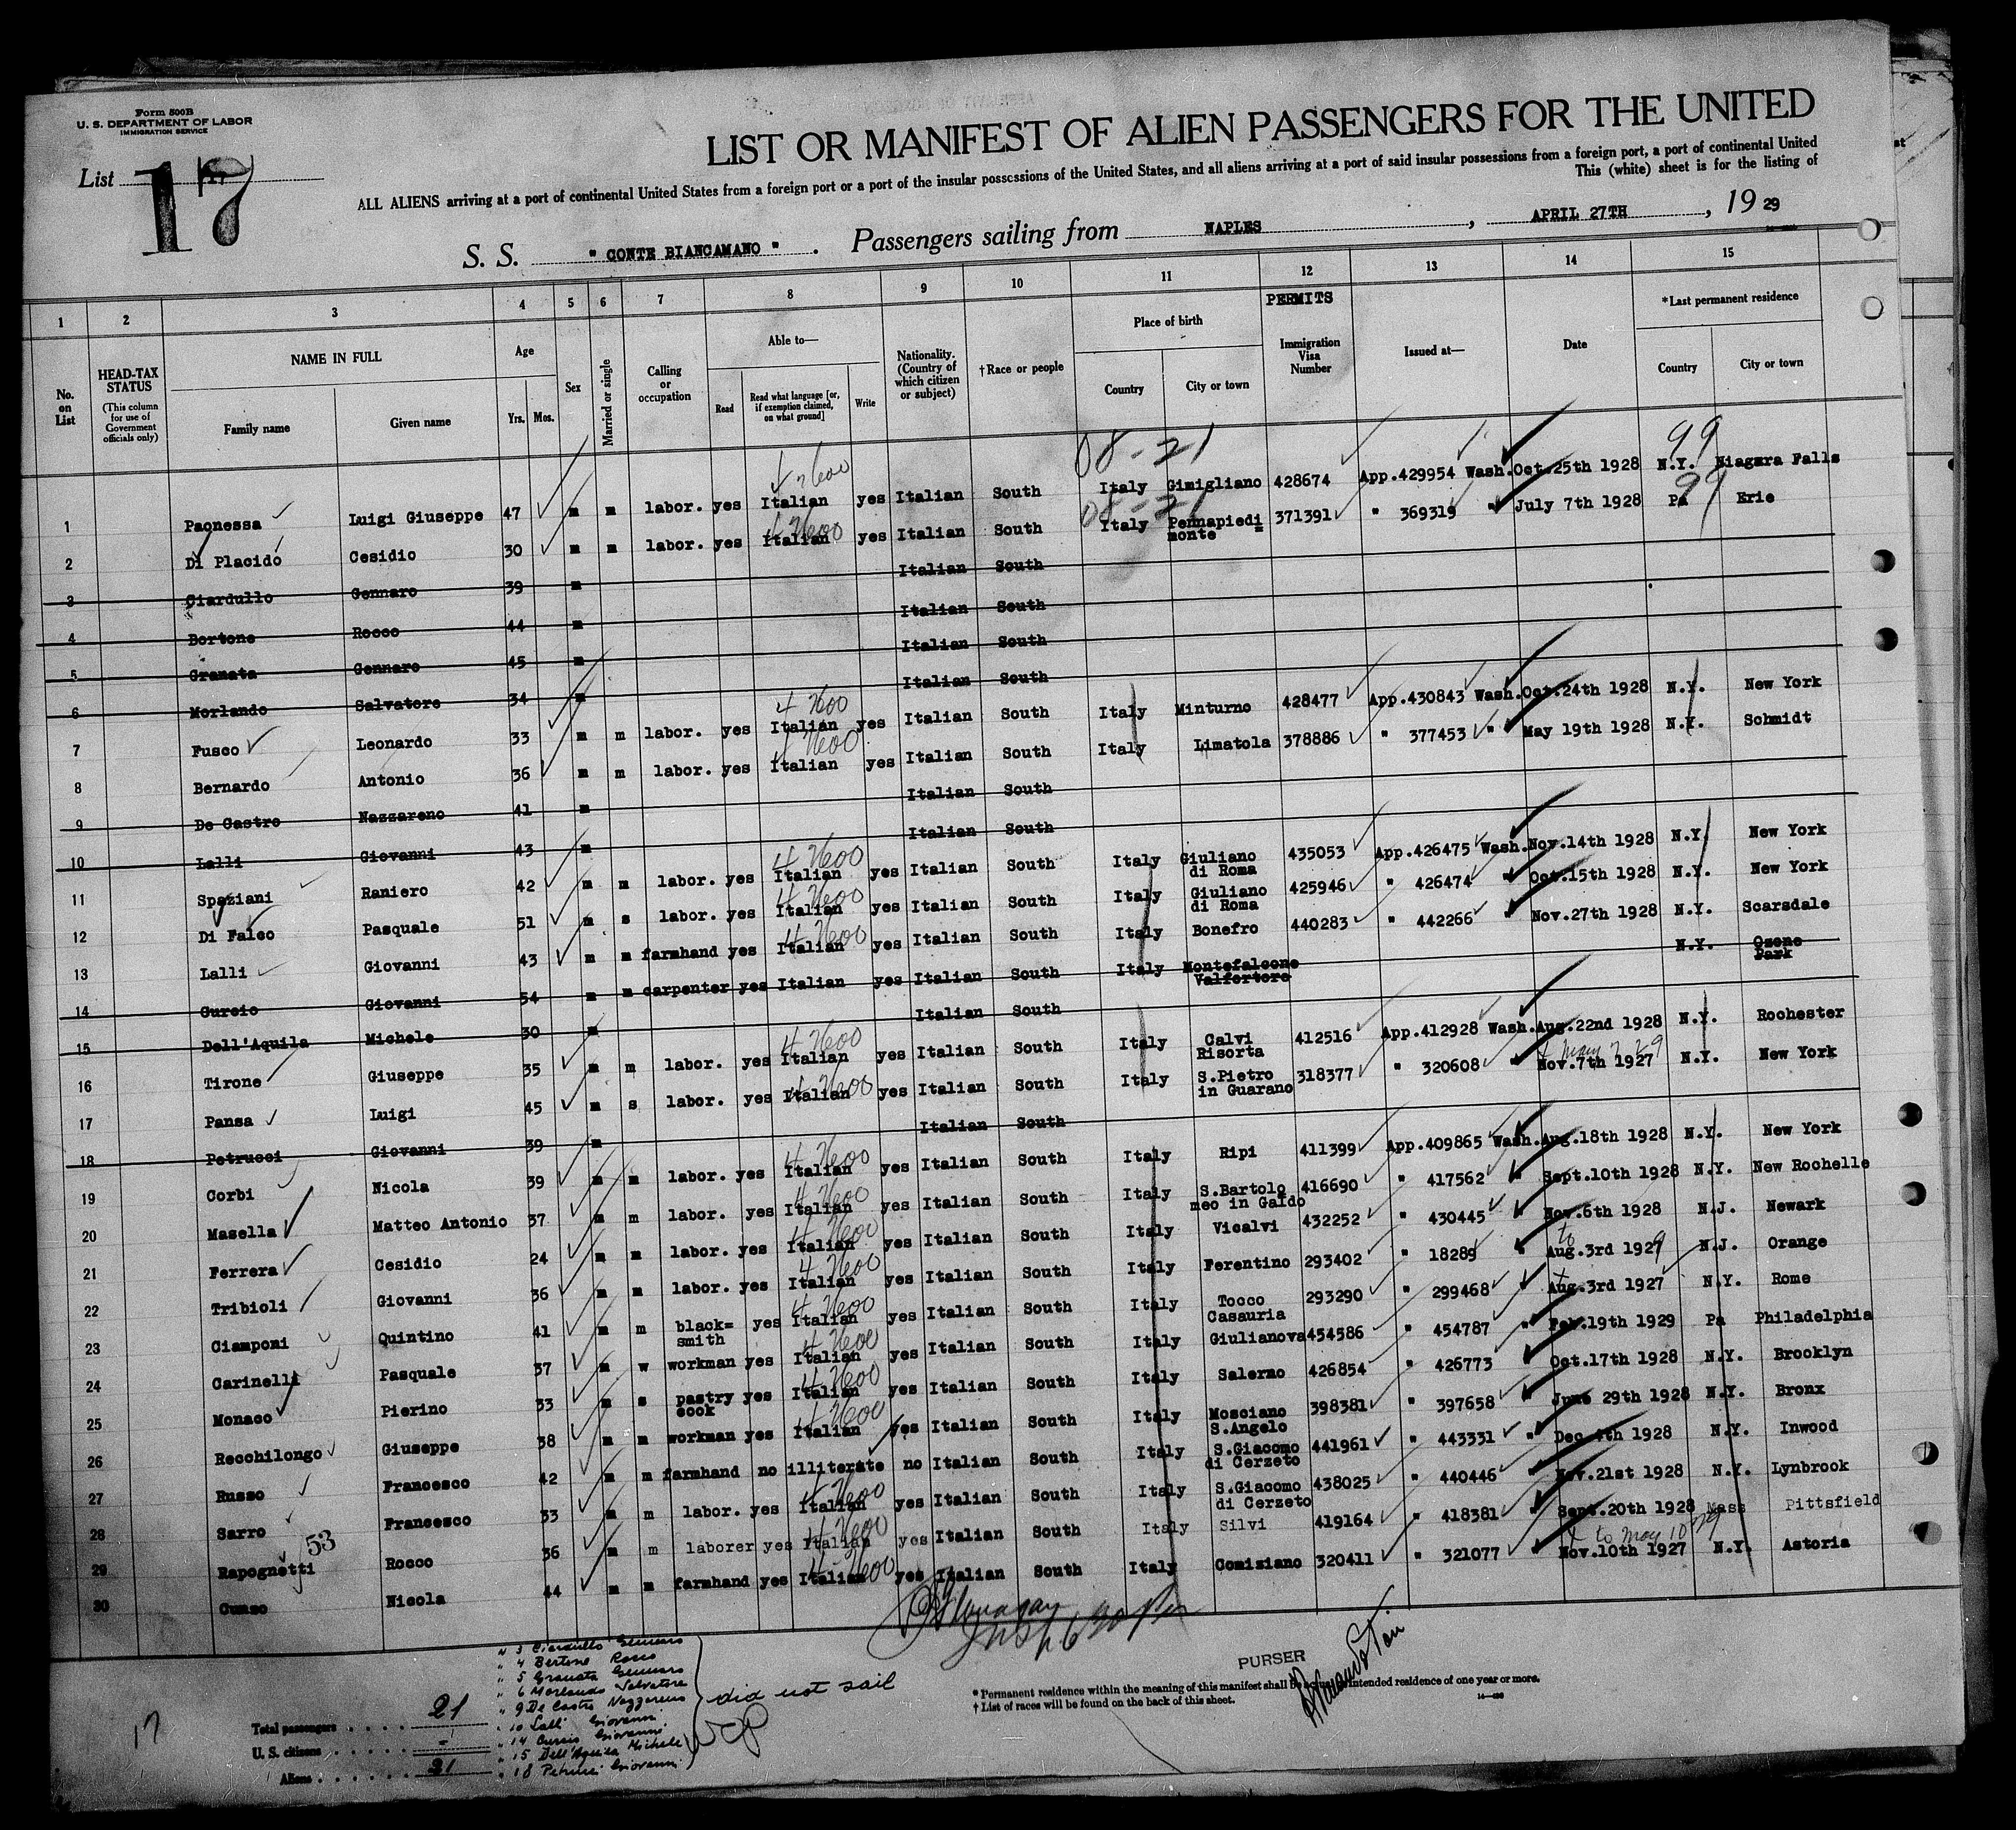 Form 500B
U. S. DEPARTMENT OF LABOR
IMMIGRATION SERVICE
List 17
LIST OR MANIFEST OF ALIEN PASSENGERS FOR THE UNITED
ALL ALIENS arriving at a port of continental United States from a foreign port or a port of the insular possessions of the United States, and all aliens arriving at a port of said insular possessions from a foreign port, a port of continental United
This (white) sheet is for the listing of
S. S. " CONTE BIANCAMANO " . Passengers sailing from NAPLES , APRIL 27TH , 19 29
1 2 3 4 5 6 7 8 9 10 11 12 13 14 15
No. on List
HEAD-TAX STATUS (This column for use of Government officials only)
NAME IN FULL Family name Given name
Age Yrs. Mos.
Sex
Married or single
Calling or occupation
Able to— Read Read what language [or, if exemption claimed, on what ground] Write
Nationality. (Country of which citizen or subject)
† Race or people
Place of birth Country City or town
PERMITS
Immigration Visa Number
Issued at—
Date
*Last permanent residence Country City or town
08-21 99
1 Paonessa Luigi Giuseppe 47 m m labor. yes Italian yes Italian South Italy Gimigliano 428674 App.429954 Wash. Oct.25th 1928 N.Y. Niagara Falls
08-21 99
2 Di Placido Cesidio 30 m m labor. yes Italian yes Italian South Italy Pennapiedi= monte 371391 " 369319 " July 7th 1928 Pa Erie
3 Ciardullo Gennaro 39 m Italian South
4 Bortone Rocco 44 m Italian South
5 Granata Gennaro 45 m Italian South
6 Morlando Salvatore 34 m Italian South
7 Fusco Leonardo 33 m m labor. yes Italian yes Italian South Italy Minturno 428477 App.430843 Wash. Oct.24th 1928 N.Y. New York
8 Bernardo Antonio 36 m m labor. yes Italian yes Italian South Italy Limatola 378886 " 377453 " May 19th 1928 N.Y. Schmidt
9 De Castro Nazzareno 41 m Italian South
10 Lalli Giovanni 43 m Italian South
11 Spaziani Raniero 42 m m labor. yes Italian yes Italian South Italy Giuliano di Roma 435053 App.426475 Wash. Nov.14th 1928 N.Y. New York
12 Di Falco Pasquale 51 m s labor. yes Italian yes Italian South Italy Giuliano di Roma 425946 " 426474 " Oct.15th 1928 N.Y. New York
13 Lalli Giovanni 43 m m farmhand yes Italian yes Italian South Italy Bonefro 440283 " 442266 " Nov.27th 1928 N.Y. Scarsdale
14 Curcio Giovanni 54 m m carpenter yes Italian yes Italian South Italy Montefalcone Valfortore N.Y. Ozone Park
15 Dell'Aquila Michele 30 m Italian South
16 Tirone Giuseppe 35 m m labor. yes Italian yes Italian South Italy Calvi Risorta 412516 App.412928 Wash. Aug.22nd 1928 N.Y. Rochester
17 Pansa Luigi 45 m s labor. yes Italian yes Italian South Italy S.Pietro in Guarano 318377 " 320608 " Nov.7th 1927 N.Y. New York
18 Petrucci Giovanni 39 m Italian South
19 Corbi Nicola 39 m m labor. yes Italian yes Italian South Italy Ripi 411399 App.409865 Wash. Aug.18th 1928 N.Y. New York
20 Masella Matteo Antonio 37 m m labor. yes Italian yes Italian South Italy S.Bartolo meo in Galdo 416690 " 417562 " Sept.10th 1928 N.Y. New Rochelle
21 Ferrera Cesidio 24 m m labor. yes Italian yes Italian South Italy Vicalvi 432252 " 430445 Nov.6th 1928 N.J. Newark
22 Tribioli Giovanni 36 m m labor. yes Italian yes Italian South Italy Ferentino 293402 " 18289 " Aug.3rd 1929 N.J. Orange
23 Ciamponi Quintino 41 m m black= smith yes Italian yes Italian South Italy Tocco Casauria 293290 " 299468 Aug.3rd 1927 N.Y. Rome
24 Carinelli Pasquale 37 m w workman yes Italian yes Italian South Italy Giulianova 454586 " 454787 " Feb.19th 1929 Pa Philadelphia
25 Monaco Pierino 33 m s pastry cook yes Italian yes Italian South Italy Salerno 426854 " 426773 Oct.17th 1928 N.Y. Brooklyn
26 Recchilongo Giuseppe 38 m m workman yes Italian yes Italian South Italy Mosciano S.Angelo 398381 " 397658 June 29th 1928 N.Y. Bronx
27 Russo Francesco 42 m m farmhand no illiterate no Italian South Italy S.Giacomo di Cerzeto 441961 " 443331 " Dec 4th 1928 N.Y. Inwood
28 Sarro Francesco 33 m m labor. yes Italian yes Italian South Italy S.Giacomo di Cerzeto 438025 " 440446 Nov.21st 1928 N.Y. Lynbrook
53
29 Rapognetti Rocco 36 m m laborer yes Italian yes Italian South Italy Silvi 419164 " 418381 Sept.20th 1928 Mass Pittsfield
to may 10
30 Cumso Nicola 44 m m farmhand yes Italian yes Italian South Italy Comiziano 320411 " 321077 Nov.10th 1927 N.Y. Astoria
" 3 Ciardullo Gennaro
" 4 Bertone Rocco
" 5 Granata Gennaro
" 6 Morlando Salvatore
" 9 De Castro Nazzareno
" 10 Lalli Giovanni
" 14 Curcio Giovanni
" 15 Dell'Aquila Michele
" 18 Petrucci Giovanni
did not sail
17
Total passengers . . . . 21
U. S. citizens . . . . . -
Aliens . . . . . . 21
PURSER
* Permanent residence within the meaning of this manifest shall be actual or intended residence of one year or more.
† List of races will be found on the back of this sheet.